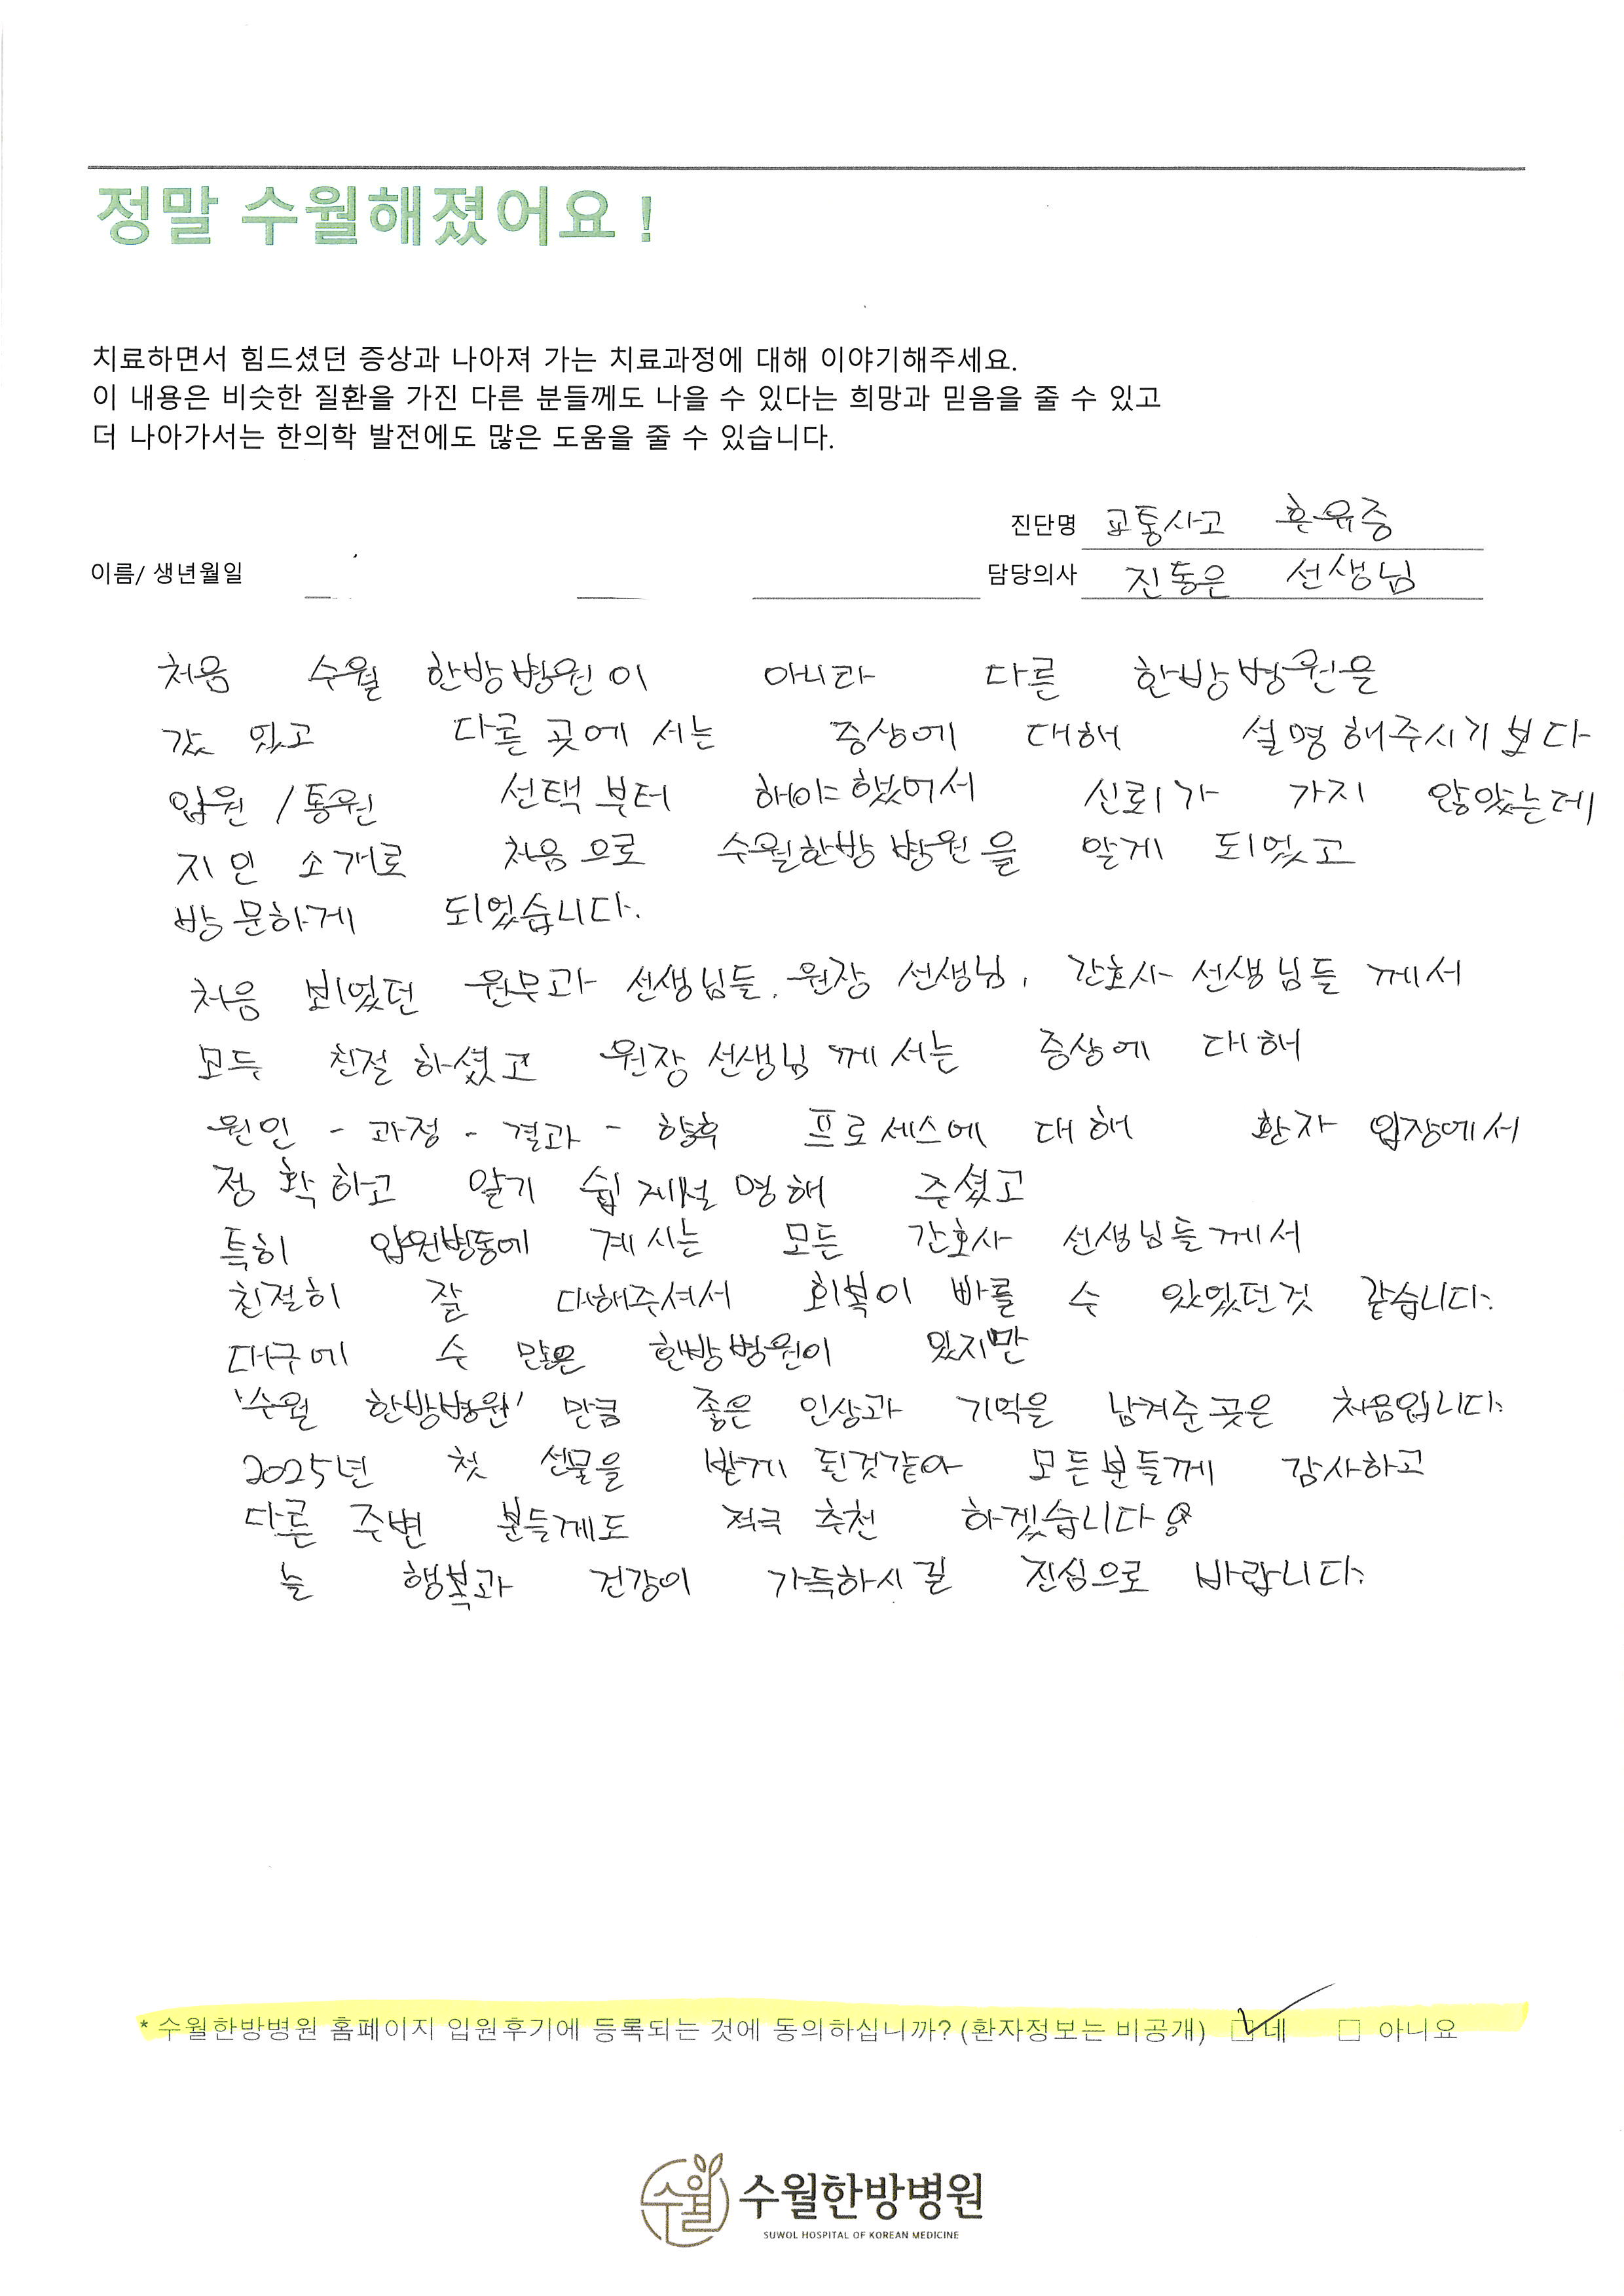 정말 수월해졌어요 !
치료하면서 힘드셨던 증상과 나아져 가는 치료과정에 대해 이야기해주세요.
이 내용은 비슷한 질환을 가진 다른 분들께도 나을 수 있다는 희망과 믿음을 줄 수 있고
더 나아가서는 한의학 발전에도 많은 도움을 줄 수 있습니다.
진단명 교통사고 휴유증
이름/ 생년월일 담당의사 진동은 선생님
처음 수월 한방병원이 아니라 다른 한방병원을
갔었고 다른 곳에서는 증상에 대해 설명해주시기보다
입원 / 통원 선택부터 해야했어서 신뢰가 가지 않았는데
지인 소개로 처음으로 수월한방병원을 알게 되었고
방문하게 되었습니다.
처음 뵈었던 원무과 선생님들, 원장 선생님, 간호사 선생님들께서
모두 친절하셨고 원장 선생님께서는 증상에 대해
원인 - 과정 - 결과 - 향후 프로세스에 대해 환자 입장에서
정확하고 알기 쉽게 설명해 주셨고
특히 입원병동에 계시는 모든 간호사 선생님들께서
친절히 잘 대해주셔서 회복이 빠를 수 있었던것 같습니다.
대구에 수 많은 한방병원이 있지만
'수월 한방병원' 만큼 좋은 인상과 기억을 남겨준 곳은 처음입니다.
2025년 첫 선물을 받게 된것같아 모든분들께 감사하고
다른 주변 분들께도 적극 추천 하겠습니다
늘 행복과 건강이 가득하시길 진심으로 바랍니다.
* 수월한방병원 홈페이지 입원후기에 등록되는 것에 동의하십니까? (환자정보는 비공개) ☑ 네 □ 아니요
수월 수월한방병원
SUWOL HOSPITAL OF KOREAN MEDICINE